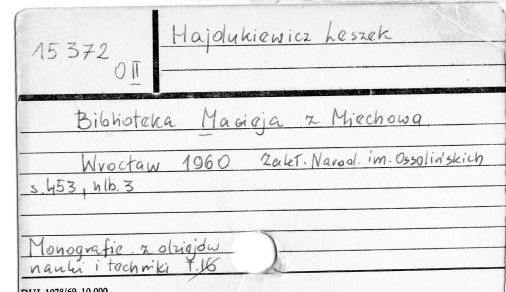 Hajdukiewicz Leszek
15 372
O II
Biblioteka Macieja z Miechowa
Wrocław 1960 Zakł. Narod. im. Ossolińskich
s. 453, nlb. 3
Monografie z dziejów
nauki i techniki T. 16
DUJ 1978/69 10.000